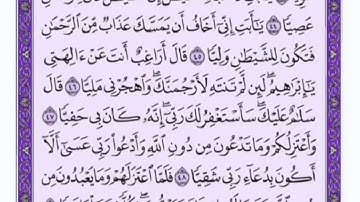 عَصِيًّا ٤٤ يَـٰٓأَبَتِ إِنِّىٓ أَخَافُ أَن يَمَسَّكَ عَذَابٌ مِّنَ ٱلرَّحْمَـٰنِ
فَتَكُونَ لِلشَّيْطَـٰنِ وَلِيًّا ٤٥ قَالَ أَرَاغِبٌ أَنتَ عَنْ ءَالِهَتِى
يَـٰٓإِبْرَٰهِيمُ ۖ لَئِن لَّمْ تَنتَهِ لَأَرْجُمَنَّكَ ۖ وَٱهْجُرْنِى مَلِيًّا ٤٦ قَالَ
سَلَـٰمٌ عَلَيْكَ ۖ سَأَسْتَغْفِرُ لَكَ رَبِّىٓ ۖ إِنَّهُۥ كَانَ بِى حَفِيًّا ٤٧
وَأَعْتَزِلُكُمْ وَمَا تَدْعُونَ مِن دُونِ ٱللَّهِ وَأَدْعُوا۟ رَبِّى عَسَىٰٓ أَلَّآ
أَكُونَ بِدُعَآءِ رَبِّى شَقِيًّا ٤٨ فَلَمَّا ٱعْتَزَلَهُمْ وَمَا يَعْبُدُونَ مِن